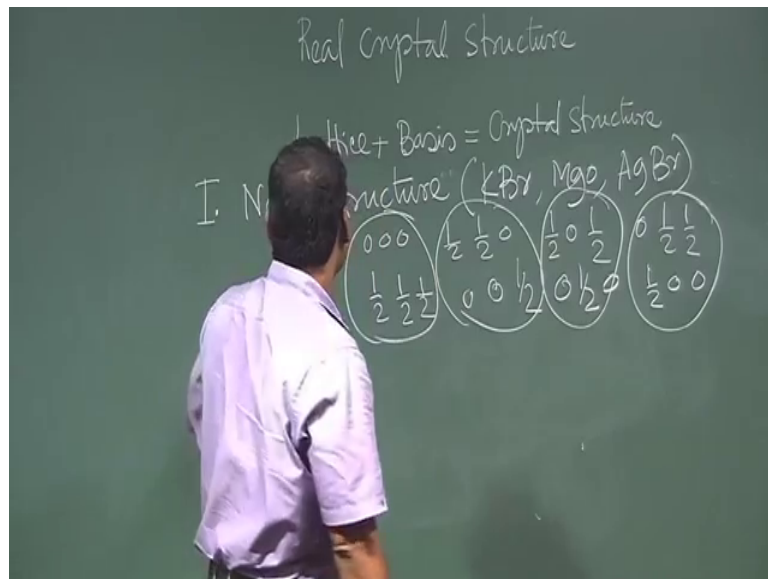 Real Crystal Structure
Lattice + Basis = Crystal Structure
I. N ructure (KBr, MgO, AgBr)
0 0 0 1/2 1/2 0 1/2 0 1/2 0 1/2 1/2
1/2 1/2 1/2 0 0 1/2 0 1/2 0 1/2 0 0